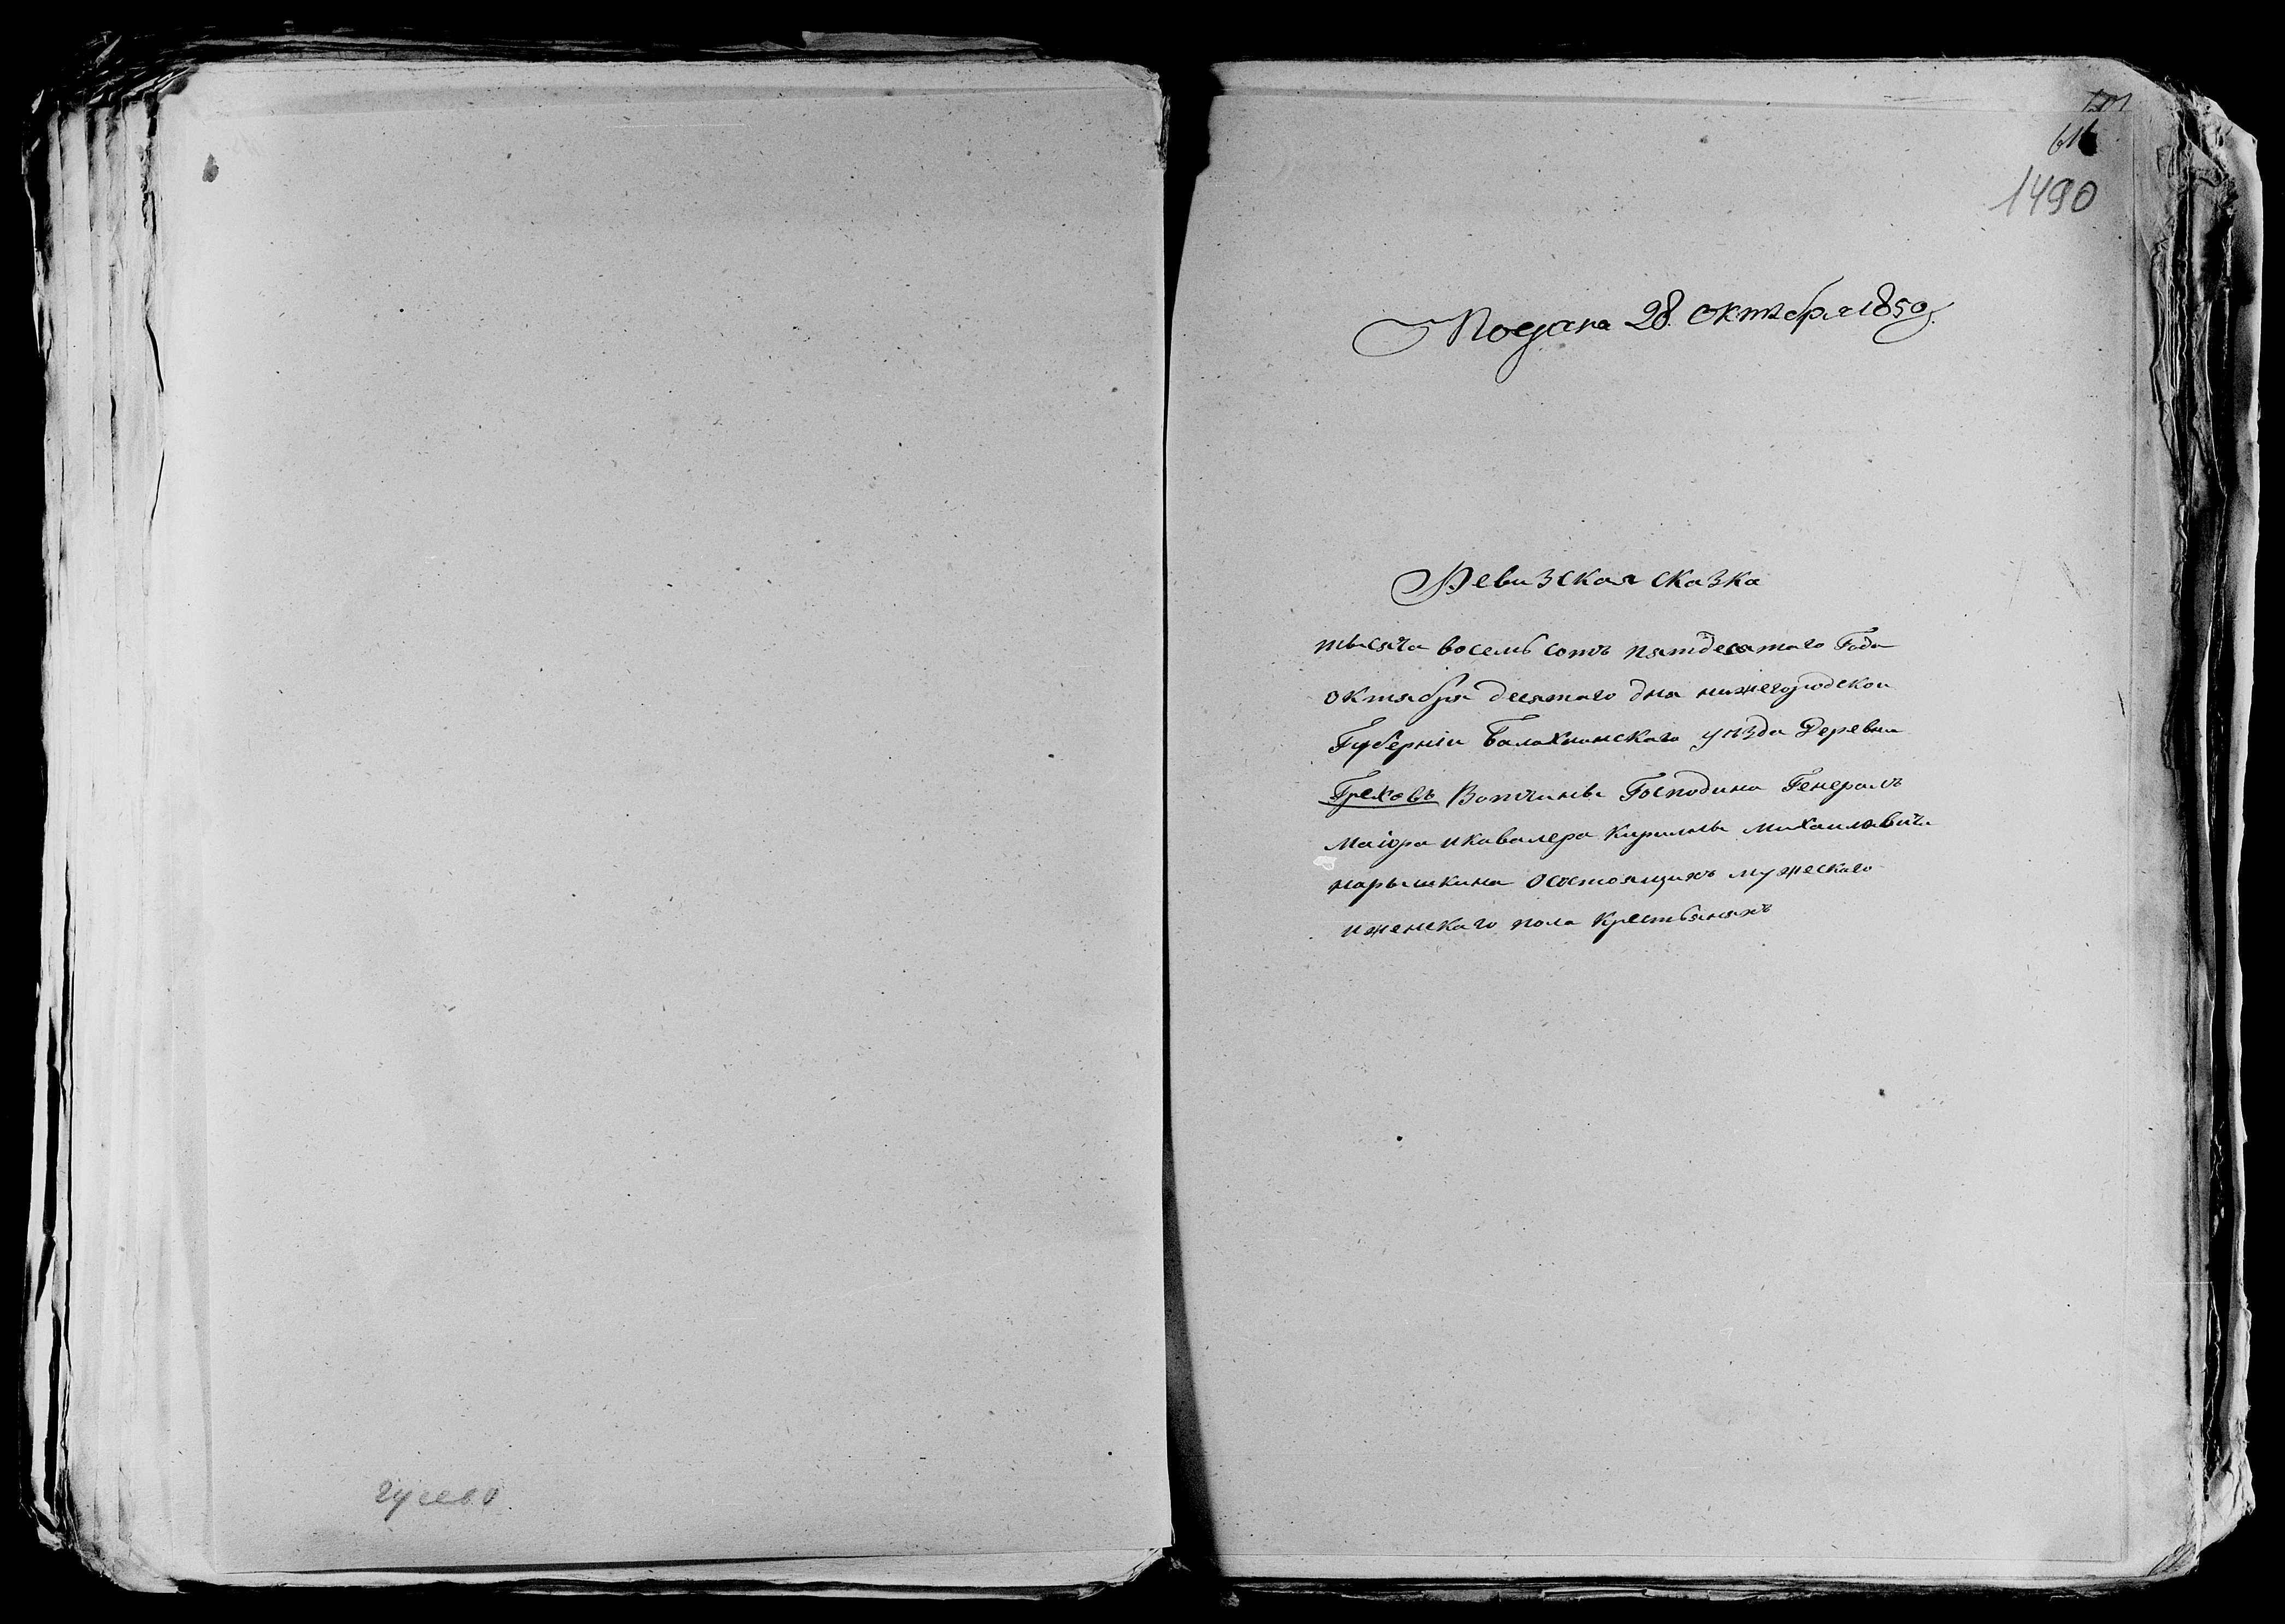 гусево
616
1490
Подана 28. Октября 1850.
Ревизская сказка
тысяча восемь сотъ пятдесятаго Года
октября десятаго дна нижегородскои
Губерніи Балахнинскаго уѣзда Деревни
Греховъ Вотчины Господина Генералъ
маіора и кавалера Кирилы михаилавича
нарышкина Осостоящихъ мужескаго
и женскаго пола Крестьянахъ